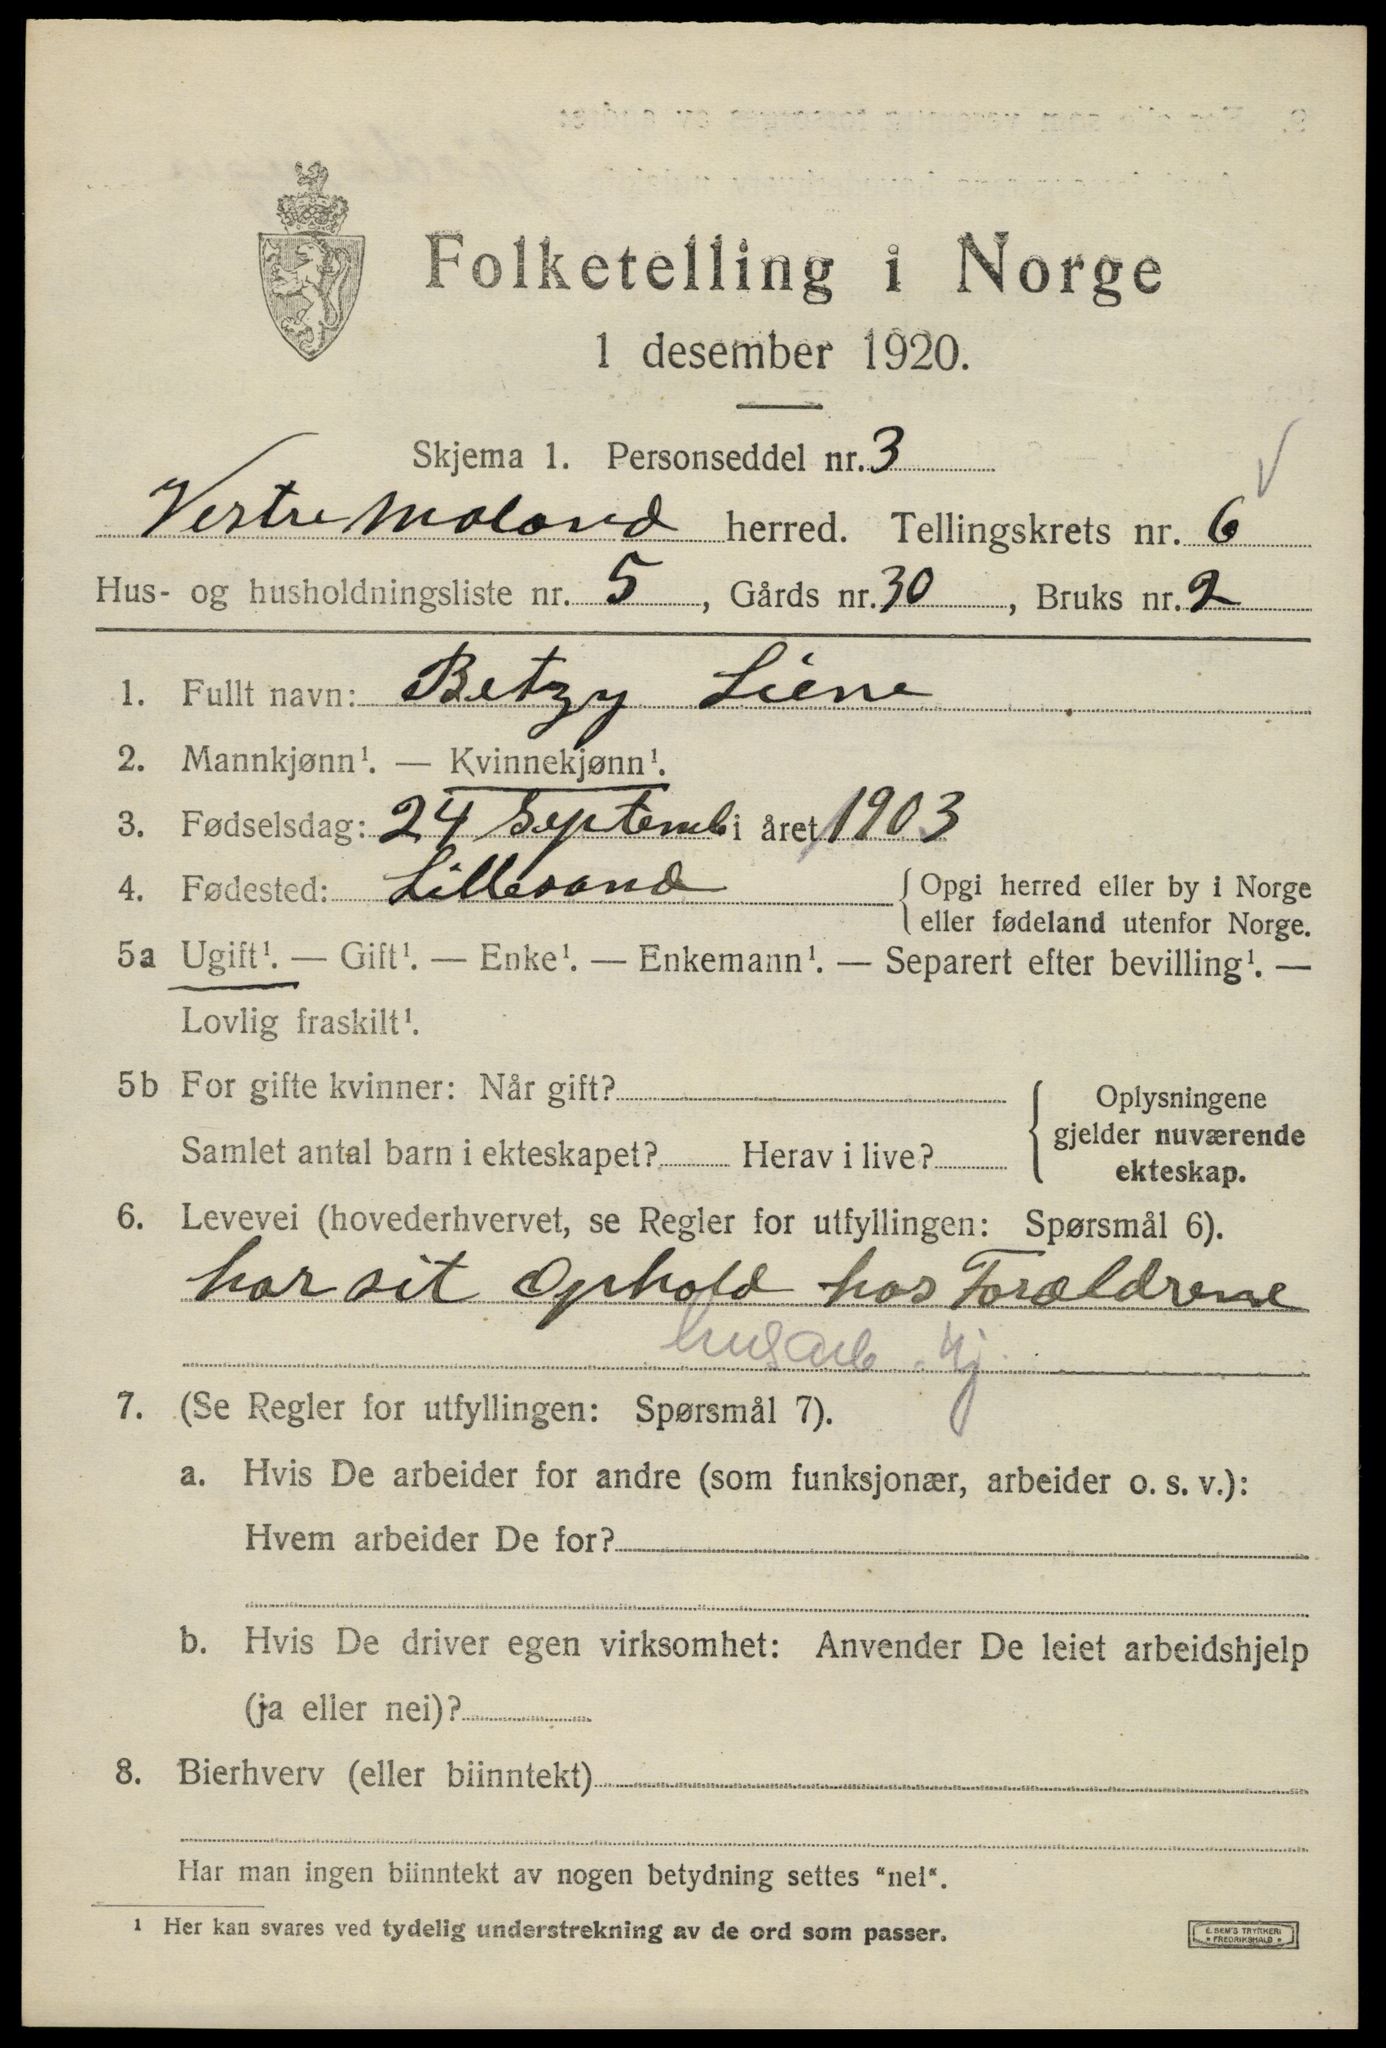 Folketelling i Norge
1 desember 1920.
Skjema 1. Personseddel nr. 3
Vestre Moland herred. Tellingskrets nr. 6
Hus- og husholdningsliste nr. 5, Gårds nr. 30, Bruks nr. 2
1. Fullt navn: Betzy Liene
2. Mannkjønn¹. — Kvinnekjønn¹.
3. Fødselsdag: 24 Septemb i året 1903
4. Fødested: Lillesand {Opgi herred eller by i Norge
eller fødeland utenfor Norge.
5a Ugift¹. — Gift¹. — Enke¹. — Enkemann¹. — Separert efter bevilling¹. —
Lovlig fraskilt¹.
5b For gifte kvinner: Når gift?
Samlet antal barn i ekteskapet? Herav i live?
{Oplysningene
gjelder nuværende
ekteskap.
6. Levevei (hovederhvervet, se Regler for utfyllingen: Spørsmål 6).
har sit Ophold hos Forældrene
husarb. hj
7. (Se Regler for utfyllingen: Spørsmål 7).
a. Hvis De arbeider for andre (som funksjonær, arbeider o. s. v.):
Hvem arbeider De for?
b. Hvis De driver egen virksomhet: Anvender De leiet arbeidshjelp
(ja eller nei)?
8. Bierhverv (eller biinntekt)
Har man ingen biinntekt av nogen betydning settes "nei".
¹ Her kan svares ved tydelig understrekning av de ord som passer.
E. SEM'S TRYKKERI
* FREDRIKSHALD *